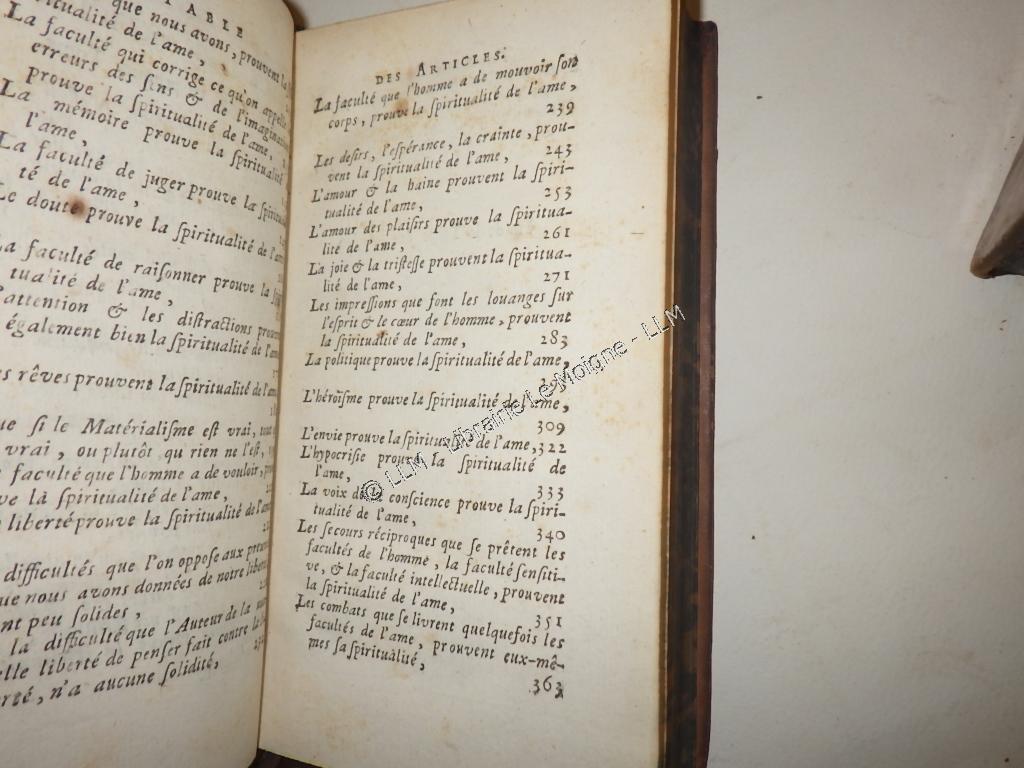 TABLE
que nous avons, prouvent la
ritualité de l'ame,
La faculté qui corrige ce qu'on appelle
erreurs des ſens & de l'imagination
prouve la ſpiritualité de l'ame,
La mémoire prouve la ſpiritualité
l'ame,
La faculté de juger prouve la
té de l'ame,
Le doute prouve la ſpiritualité de l'ame
La faculté de raiſonner prouve la
tualité de l'ame,
L'attention & les diſtractions
également bien la ſpiritualité de l'ame
rêves prouvent la ſpiritualité de l'ame
ſi le Matérialiſme eſt vrai,
vrai, ou plutôt, qu rien ne l'eſt,
faculté que l'homme a de vouloir,
la ſpiritualité de l'ame,
liberté prouve la ſpiritualité de l'ame
difficultés que l'on oppoſe aux
que nous avons données de notre liberté
peu ſolides,
la difficulté que l'Auteur de la
elle liberté de penſer fait contre la
n'a aucune ſolidité,
DES ARTICLES.
La faculté que l'homme a de mouvoir ſon
corps, prouve la ſpiritualité de l'ame,
239
Les deſirs, l'eſpérance, la crainte, prou-
vent la ſpiritualité de l'ame, 243
L'amour & la haine prouvent la ſpiri-
tualité de l'ame, 253
L'amour des plaiſirs prouve la ſpiritua-
lité de l'ame, 261
La joie & la triſteſſe prouvent la ſpiritua-
lité de l'ame, 271
Les impreſſions que font les louanges ſur
l'eſprit & le cœur de l'homme, prouvent
la ſpiritualité de l'ame, 283
La politique prouve la ſpiritualité de l'ame,
L'héroïſme prouve la ſpiritualité de l'ame,
309
L'envie prouve la ſpiritualité de l'ame, 322
L'hypocriſie prouve la ſpiritualité de
l'ame, 333
La voix de la conſcience prouve la ſpiri-
tualité de l'ame, 340
Les ſecours réciproques que ſe prêtent les
facultés de l'homme, la faculté ſenſiti-
ve, & la faculté intellectuelle, prouvent
la ſpiritualité de l'ame, 351
Les combats que ſe livrent quelquefois les
facultés de l'ame, prouvent eux-mê-
mes ſa ſpiritualité,
363
© LLM - Librairie Le Moigne - LLM